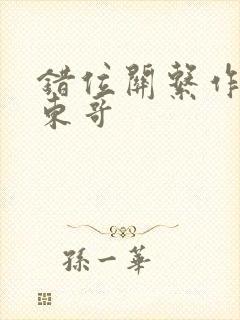 錯位關繫作
東哥
孫一華